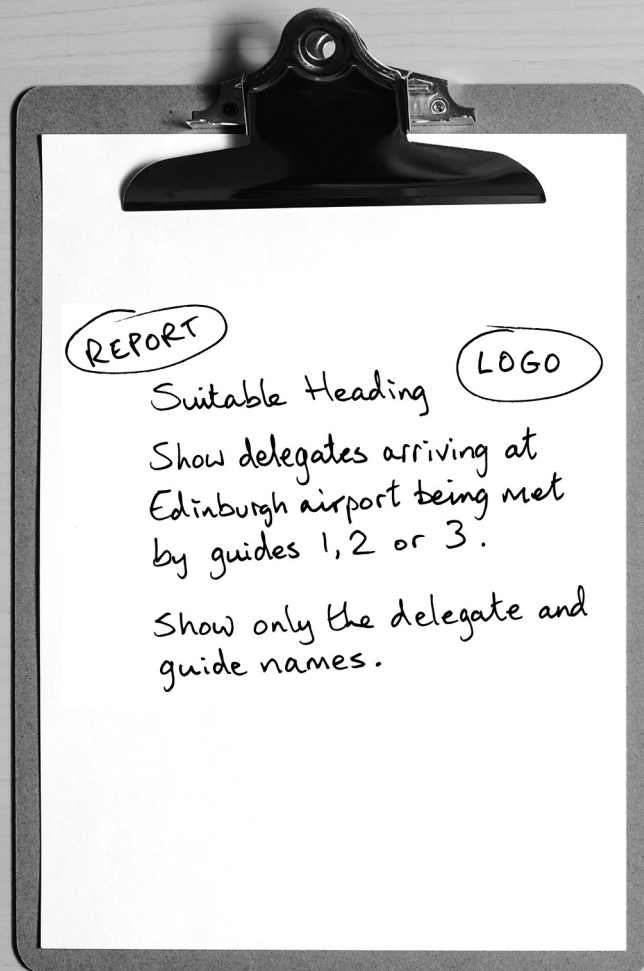 REPORT
LOGO
Suitable Heading
Show delegates arriving at
Edinburgh airport being met
by guides 1, 2 or 3.
Show only the delegate and
guide names.